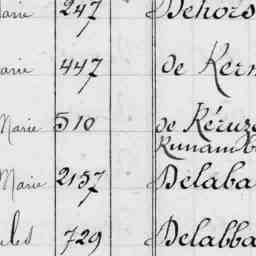 Marie 247 Dehors
Marie 447 de Kern
Marie 510 de Kéruzo
Runamb
Marie 2157 Delaba
ules 729 Delabba